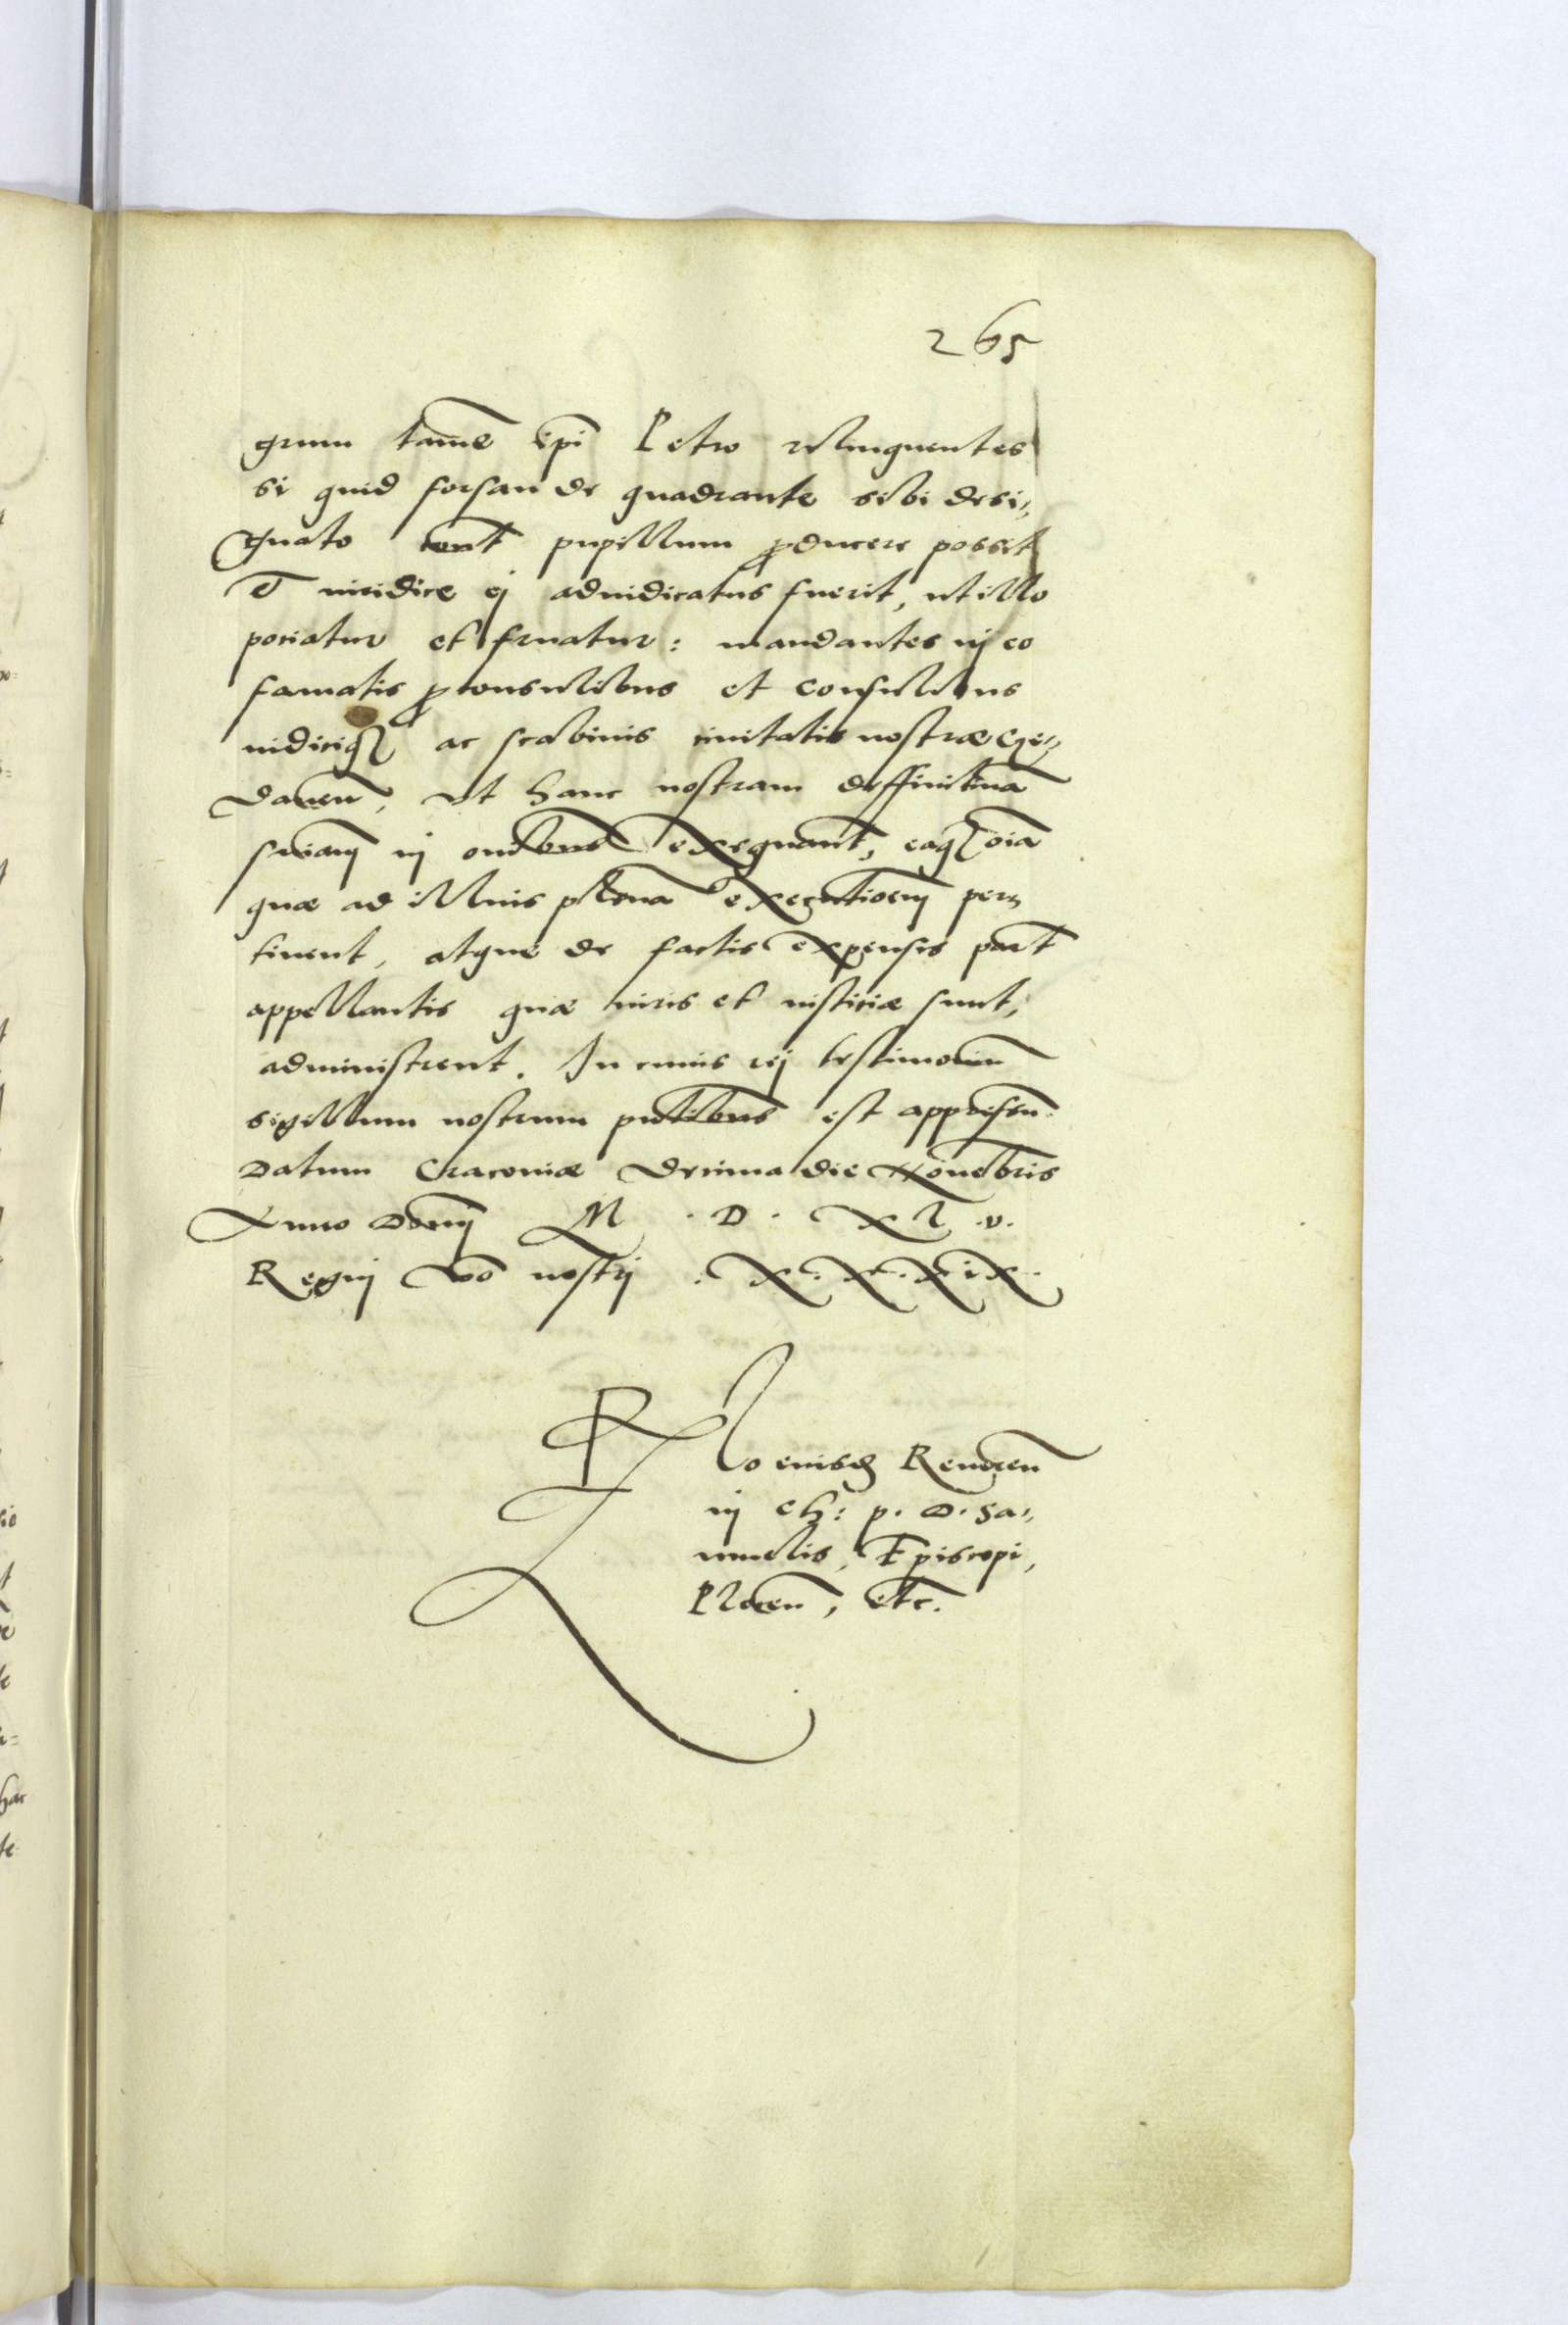 265
grum tamē ipī Petro relinquentes
si quid forsan de quadrante sibi desi„
gnato cont pupillum producere possit
et iuridice ej adiudicatus fuerit, ut illo
pociatur et fruatur: mandantes in eo
famatis proconsulibus et consulibus
iudiciq ac scabinis civitatis nostræ Ge„
danen̄, ut hanc nostram deffinitivā
sniam in omibus exequant, eaq oīa
quæ ad illius plenā executionem per„
tinent, atque de factis expensis part
appellantis quæ iuris et iusticiæ sunt,
administrent. In cuius rej testimoniū
sigillum nostrum pntibus est appressū.
Datum Cracoviæ decima die Xōuebris
Anno Domj M . D . X L .v.
Regnj vō nostrj . X . X . X i X .
Rlo eiusd Reverēn
in Ch: p. D. Sa„
muelis, Episcopi,
Plocen̄, etc.